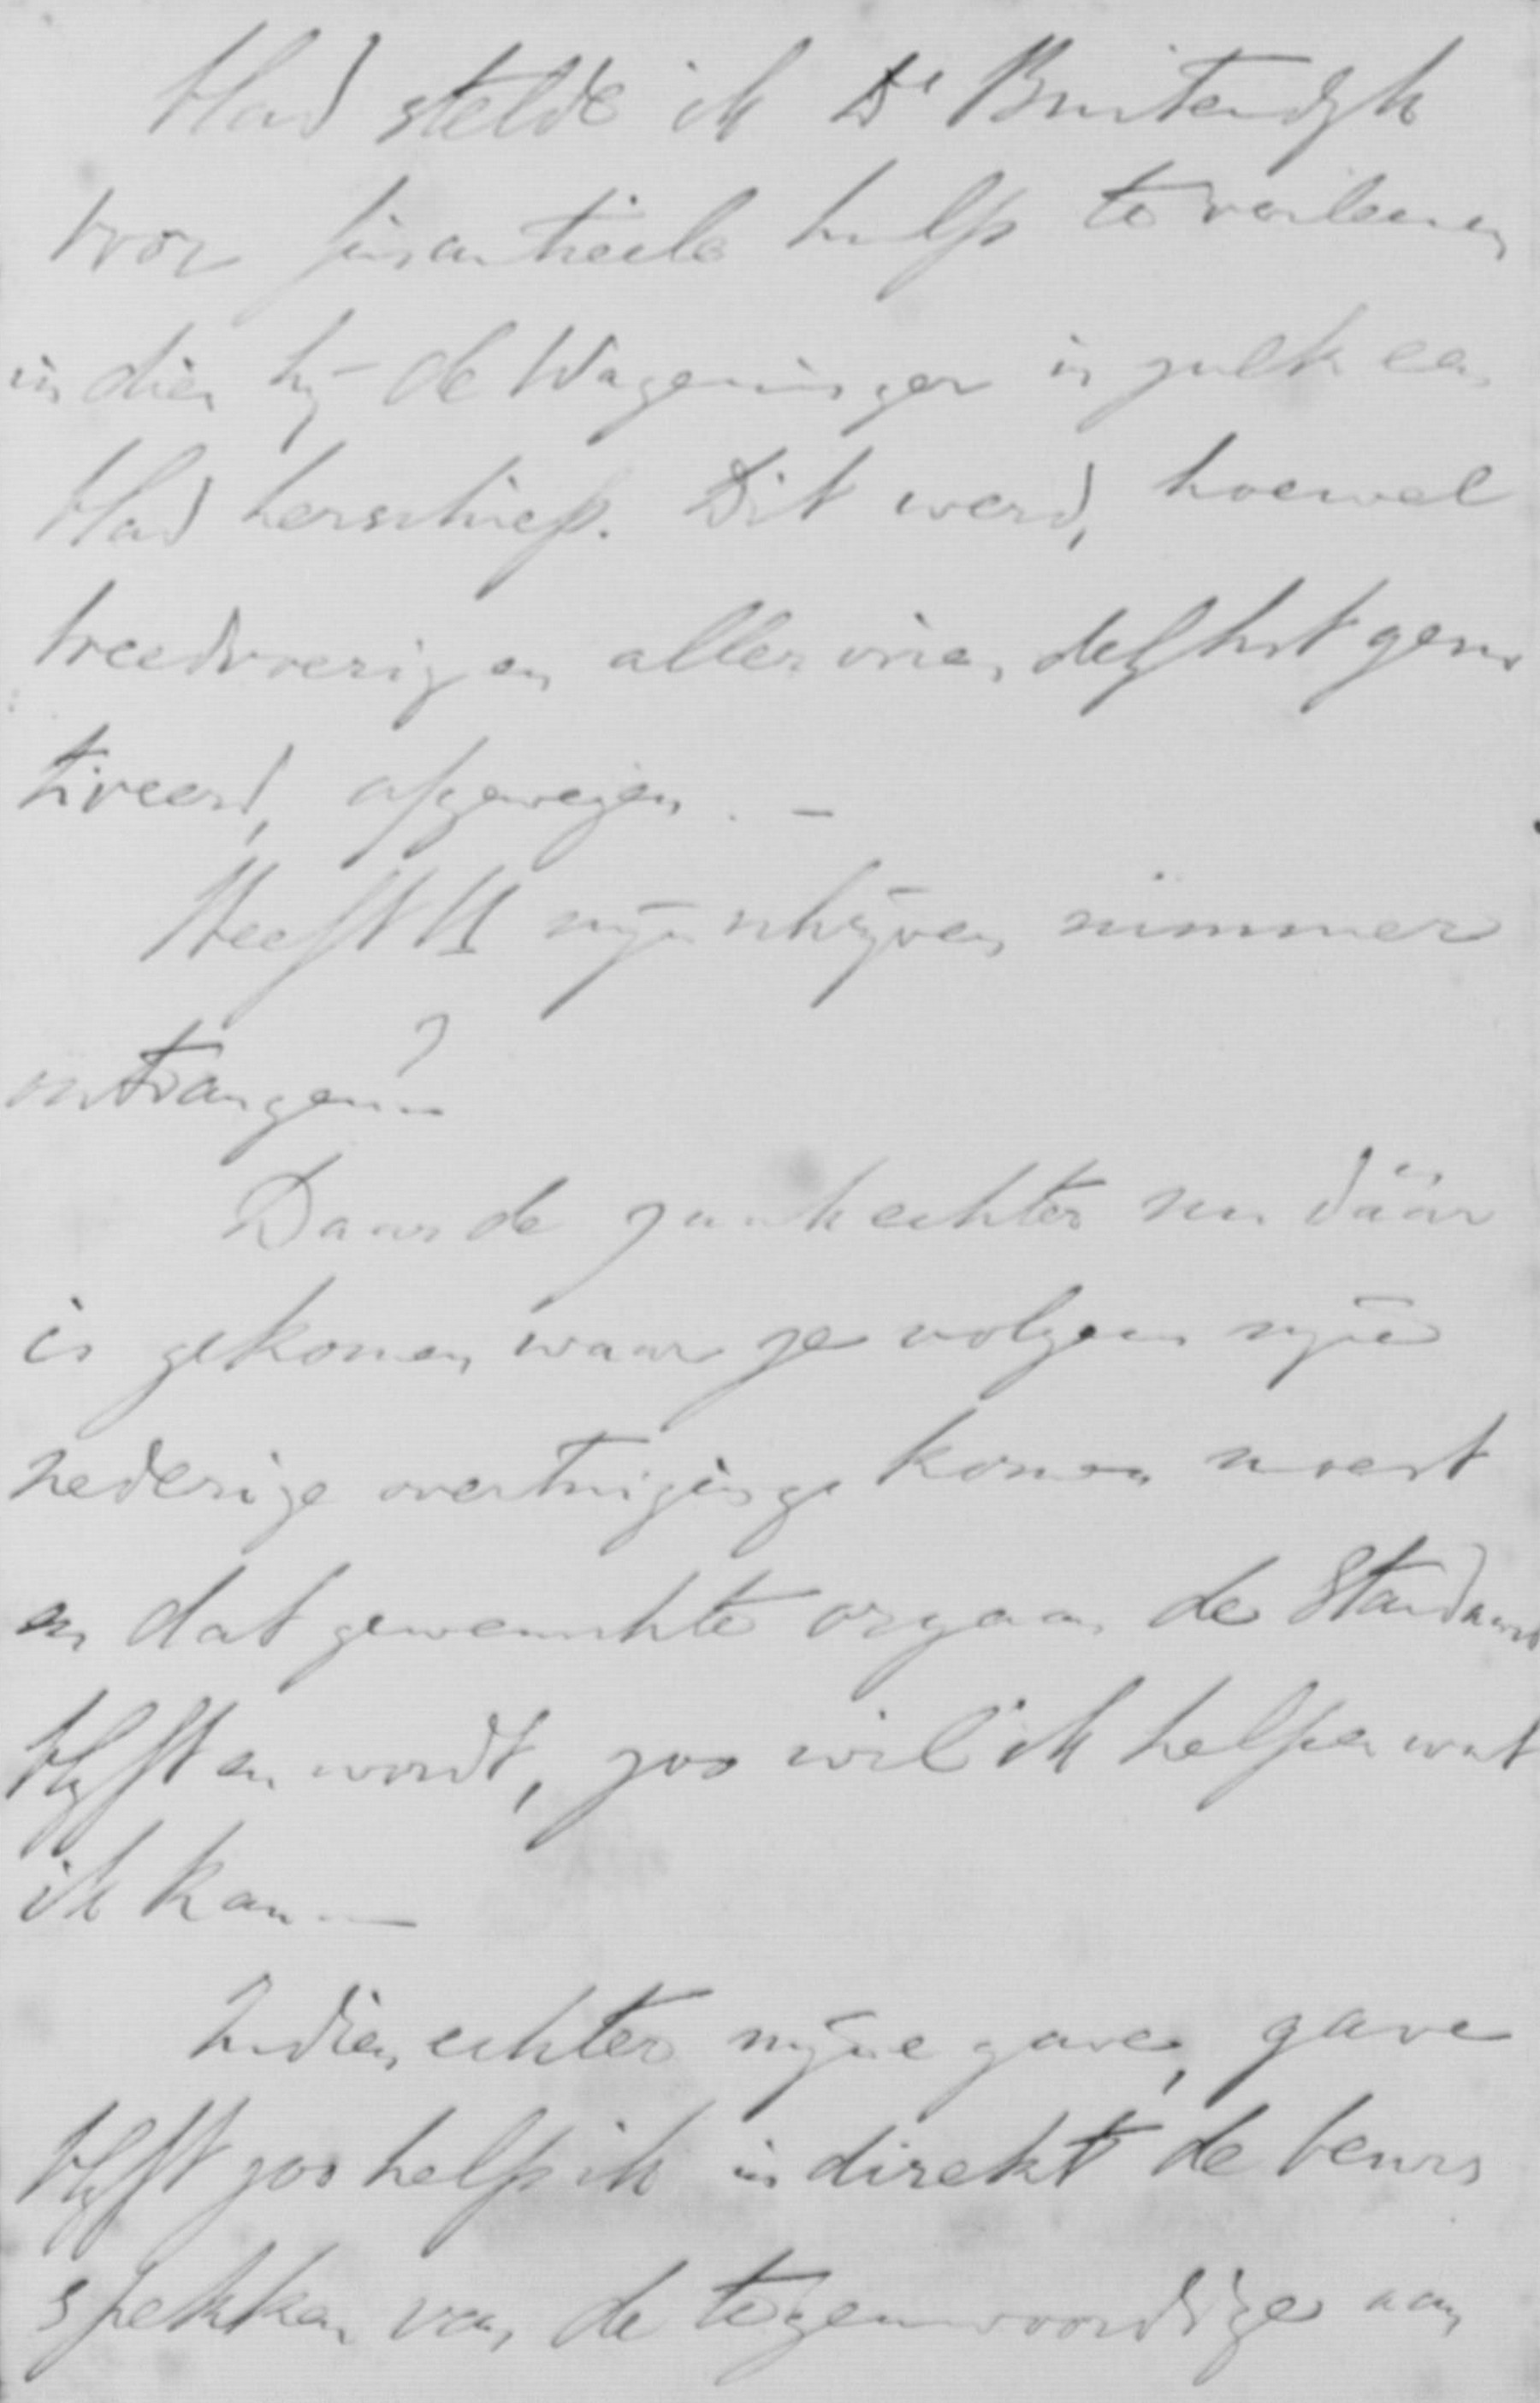 blad stelde ik Ds Buitendyk
voor finantieele hulp te verleenen
indien hij de Wageninger in zulk een
blad herschiep. Dit werd, hoewel
breedvoerig en allervriendelijkst gemo
tiveerd, afgewezen. –
Heeft U mijn schrijven nimmer
ontvangen? –
Daar de zaak echter nu däär
is gekomen waar ze volgens mijne
nederige overtuiging komen moest
en dat gewenschte orgaan de Standaard
blyft en wordt, zoo wil ik helpen wat
ik kan —
Indien echter mijne gave, gave
blyft zoo help ik indirekt de beurs
spekken van de tegenwoordige aan